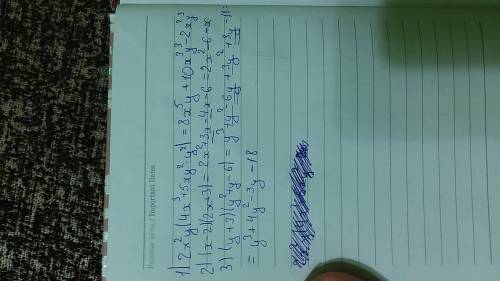 Важливі дати / Important Dates
1) 2x²y(4x³+5xy²-y²)=8x⁵y+10x³y³-2x²y³
2) (x-2)(2x+3)=2x²+3x-4x-6=2x²-6-x
3) (y+3)(y²+y-6)=y³+y²-6y+3y²+3y-18=
=y³+4y²-3y-18